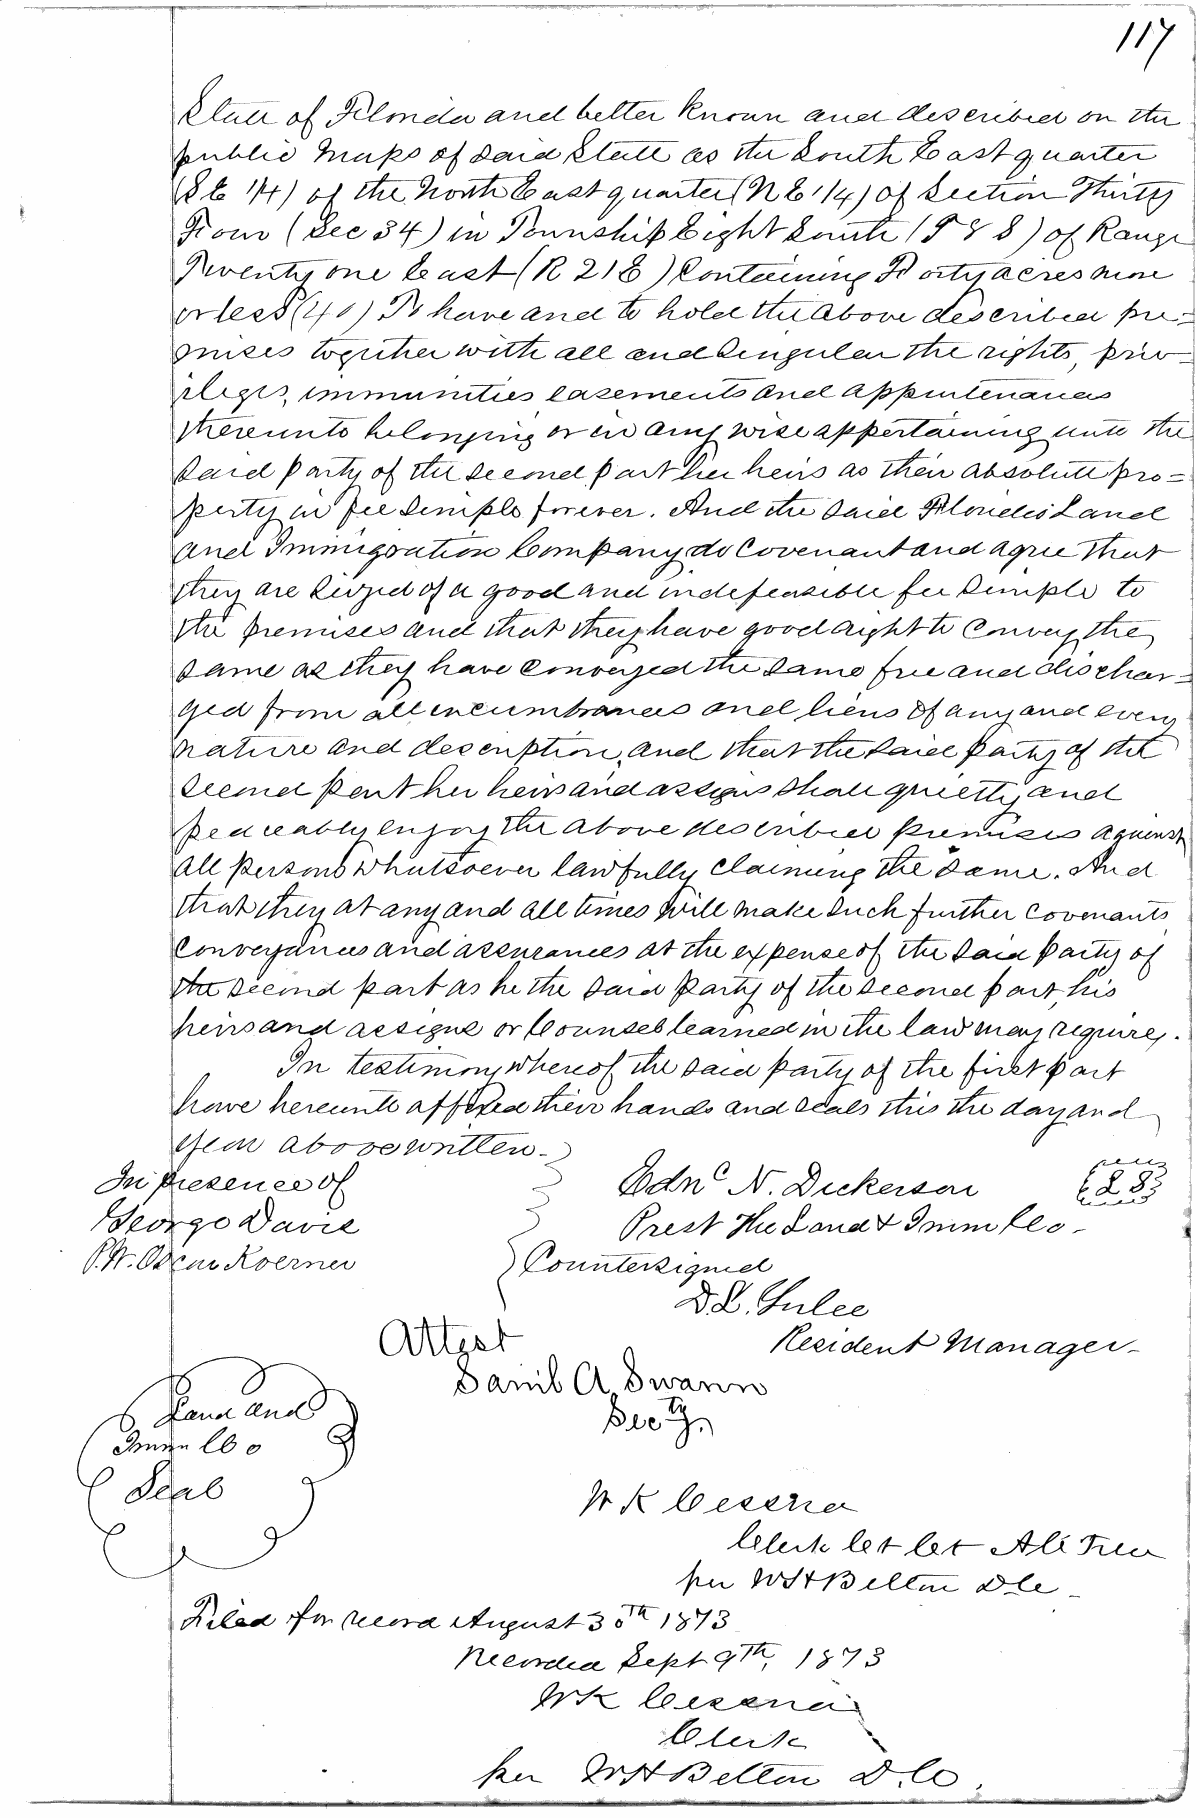 117
State of Florida and better known and described on the
public Maps of said State as the South East quarter
(SE 1/4) of the North East quarter (N E 1/4) of Section Thirty
Four (Sec 34) in Township Eight South (T 8 S) of Range
Twenty one East (R 21 E) Containing Forty acres more
or less (40) To have and to hold the above described pre=
mises together with all and Singular the rights, priv=
ileges, immunities easements and appurtenances
thereunto belonging or in any wise appertaining unto the
said party of the second part her heirs as their absolute pro=
perty in fee simple forever. And the said Florida Land
and Immigration Company do Covenant and agree that
they are seized of a good and indefeasible fee Simple to
the premises and that they have good right to Convey the
same as they have conveyed the same free and dischar=
ged from all incumbrances and liens of any and every
nature and description, and that the said party of the
second part her heirs and assigns shall quietly and
peaceably enjoy the above described premises against
all persons whatsoever lawfully claiming the same. And
that they at any and all times will make such further covenants
conveyances and assurances at the expense of the said party of
the second part as he the said party of the second part, his
heirs and assigns or Counsel learned in the law may require.
In testimony whereof the said party of the first part
have hereunto affixed their hands and seals this the day and
year above written.
In presence of
George Davis
P.W. Oscar Koerner
Edn^c N. Dickerson {LS}
Prest Fla Land & Imm Co
Countersigned
D.L. Yulee
Resident Manager
Attest
Saml A. Swann
Secty.
Land and
Imm Co
Seal
W K Cessna
Clerk Ct Ct Al Fla
per W H Belton D Cl
Filed for record August 30th 1873
Recorded Sept 9th, 1873
W K Cessna
Clerk
per W H Belton D. C.